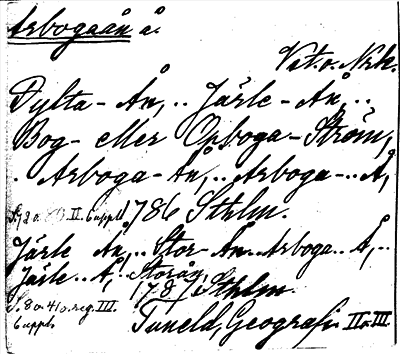 Arbogaån å.
Vstm. o. Nrk.
Dylta-Ån, .. Järle-Ån, ..
Bog- eller Opboga-Ström,
. Arboga-Ån, .. Arboga-.. Å,
II. 6 uppl. 1786 Sthlm.
Järle Ån, .. Stor-Ån. Arboga.. Å, ..
Järle.. Å, Storån,
1787 Sthlm.
S. 8 o. 41 o. reg. III.
6 uppl.
Tuneld, Geografi II o. III.